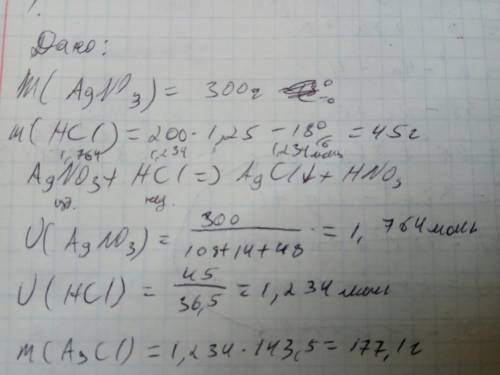 Дано:
m(AgNO3) = 300г
m(HCl) = 200 · 1,25 - 18% = 45г
1,764 1,234 1,234 моль
AgNO3 + HCl (=) AgCl↓ + HNO3
изб. нед.
υ(AgNO3) = 300 / 108+14+48 = 1,764 моль
υ(HCl) = 45 / 36,5 = 1,234 моль
m(AgCl) = 1,234 · 143,5 = 177,1г